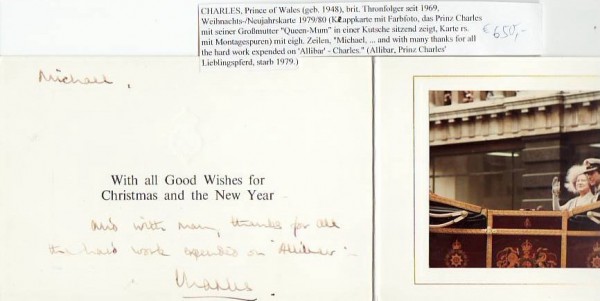 CHARLES, Prince of Wales (geb. 1948), brit. Thronfolger seit 1969,
Weihnachts-/Neujahrskarte 1979/80 (Klappkarte mit Farbfoto, das Prinz Charles
mit seiner Großmutter "Queen-Mum" in einer Kutsche sitzend zeigt, Karte rs.
mit Montagespuren) mit eigh. Zeilen, "Michael, ... and with many thanks for all
the hard work expended on 'Allibar' - Charles." (Allibar, Prinz Charles'
Lieblingspferd, starb 1979.)
€ 650,-
Michael,
With all Good Wishes for
Christmas and the New Year
and with many thanks for all
the hard work expended on "Allibar" -
Charles